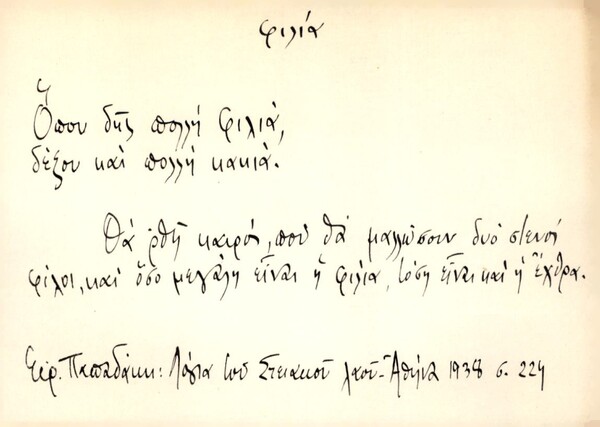 φιλία
Ὅπου δῆς πολλή φιλιά,
δέξου καί πολλή κακιά.
Θά ρθῆ καιρός, πού θά μαλλώσουν δυό στενοί
φίλοι, καί ὅσο μεγάλη εἶναι ἡ φιλία, τόση εἶναι καί ἡ ἔχθρα.
Εἰρ. Παπαδάκη: Λόγια τοῦ Στειακοῦ λαοῦ - Ἀθήνα 1938 σ. 224